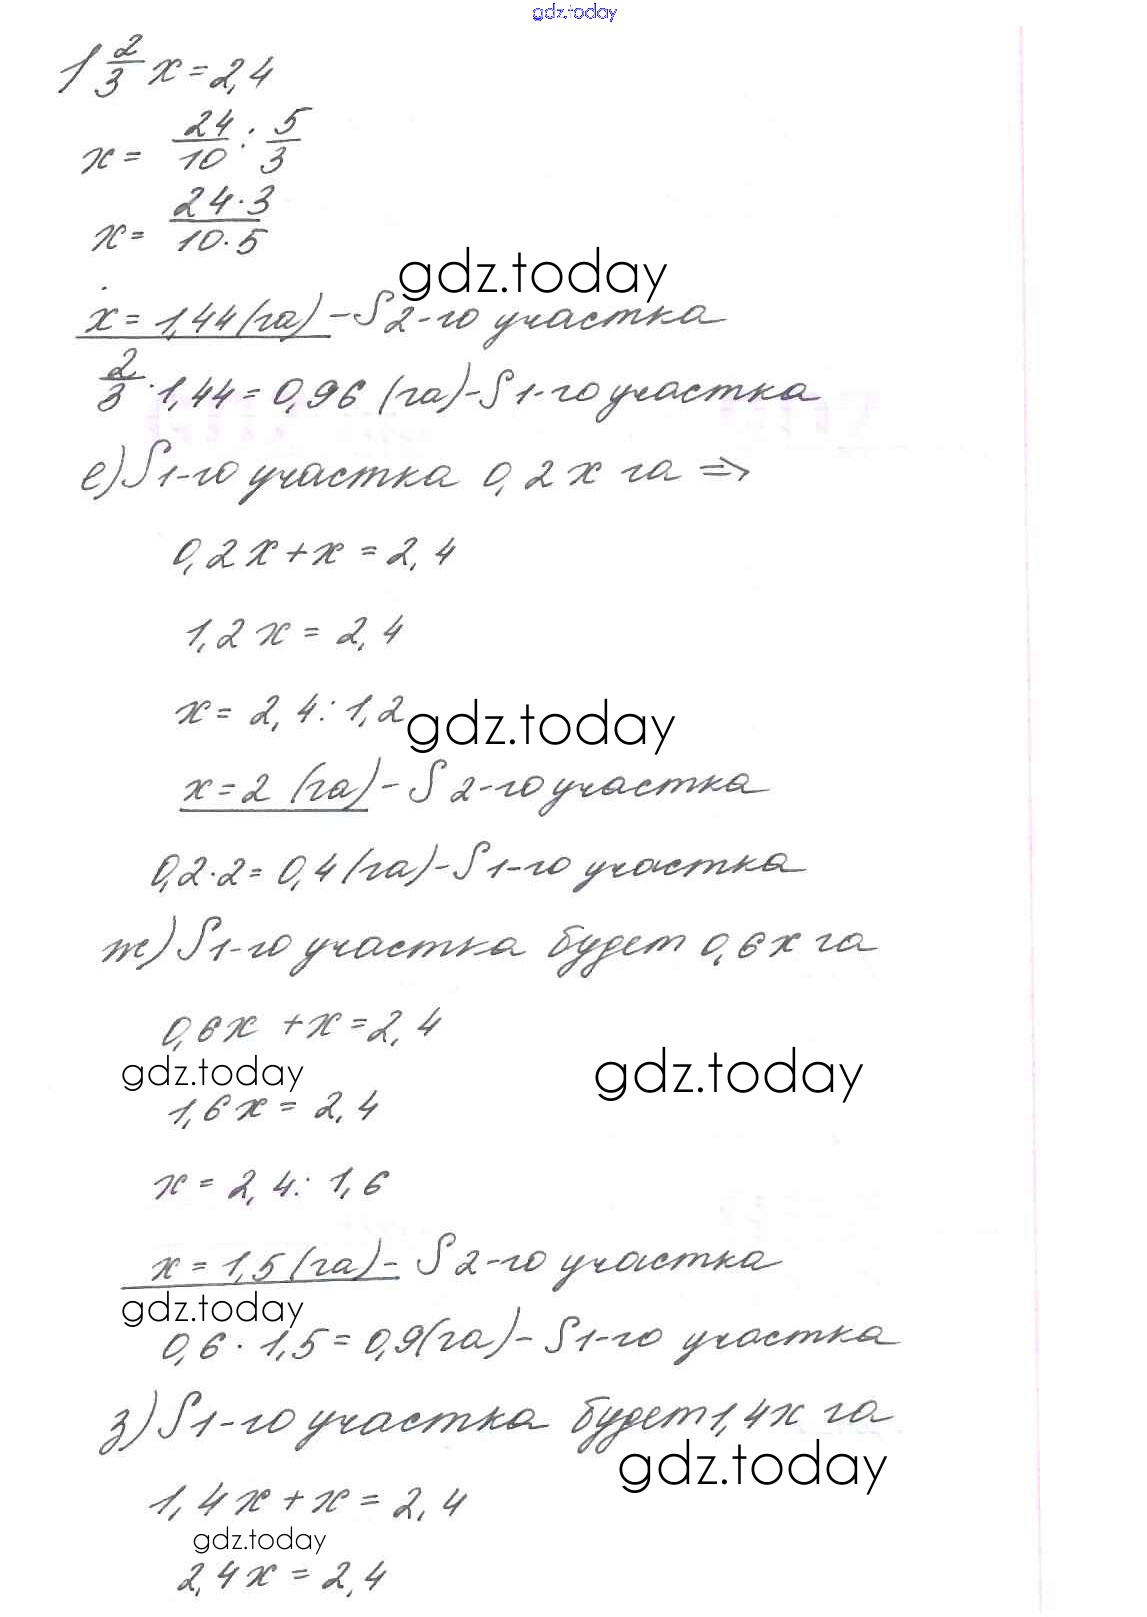 gdz.today
1 2/3 x = 2,4
x = 24/10 : 5/3
x = 24·3/10·5
gdz.today
x = 1,44 (га) - S 2-го участка
2/3 · 1,44 = 0,96 (га) - S 1-го участка
е) S 1-го участка 0,2x га ⇒
0,2x + x = 2,4
1,2x = 2,4
x = 2,4 : 1,2
gdz.today
x = 2 (га) - S 2-го участка
0,2 · 2 = 0,4 (га) - S 1-го участка
ж) S 1-го участка будет 0,6x га
0,6x + x = 2,4
gdz.today gdz.today
1,6x = 2,4
x = 2,4 : 1,6
x = 1,5 (га) - S 2-го участка
gdz.today
0,6 · 1,5 = 0,9 (га) - S 1-го участка
з) S 1-го участка будет 1,4x га
gdz.today
1,4x + x = 2,4
gdz.today
2,4x = 2,4